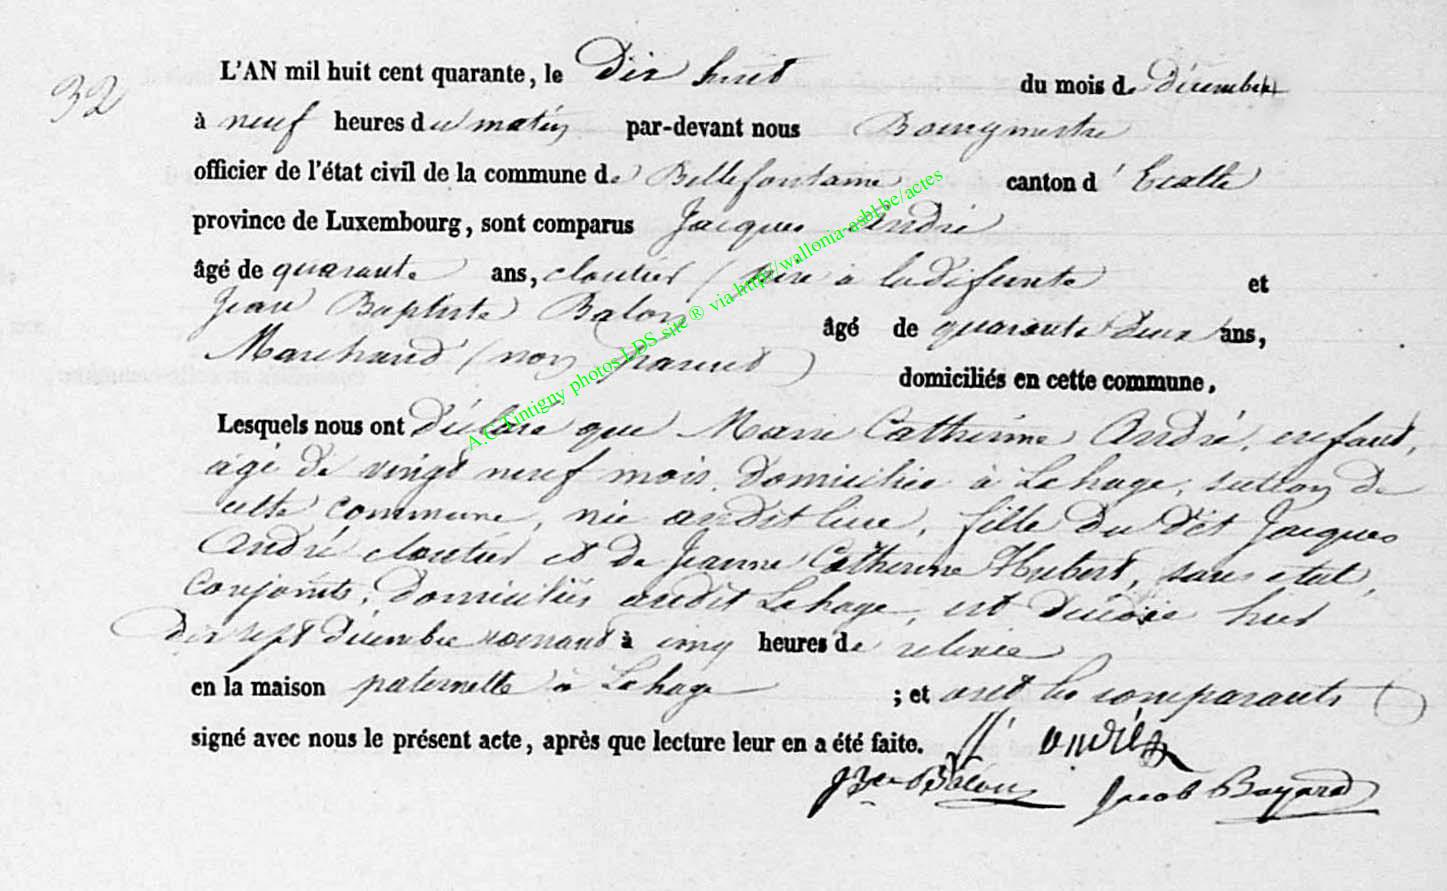 32
L'AN mil huit cent quarante, le Dix huit du mois de Décembre
à neuf heures du matin par-devant nous Bourgmestre
officier de l'état civil de la commune de Bellefontaine canton d'Etalle
province de Luxembourg, sont comparus Jacques André
âgé de quarante ans, cloutier (père à la défunte et
Jean Baptiste Balon âgé de quarante deux ans,
Marchand (non parent) domiciliés en cette commune.
Lesquels nous ont déclaré que Marie Catherine André, enfant,
agé de vingt neuf mois, domiciliée à Lahage, section de
cette commune, née audit lieu, fille du dit Jacques
André cloutier et de Jeanne Catherine Hubert, sans état,
conjoints, domiciliés audit Lahage, est décédée hier
dix sept décembre courant à cinq heures de relevée
en la maison paternelle à Lahage ; et ont les comparants
signé avec nous le présent acte, après que lecture leur en a été faite.
J andré
JBte Balon Jacob Bayard
A.C Tintigny photos LDS site ® via http://wallonia-asbl.be/actes